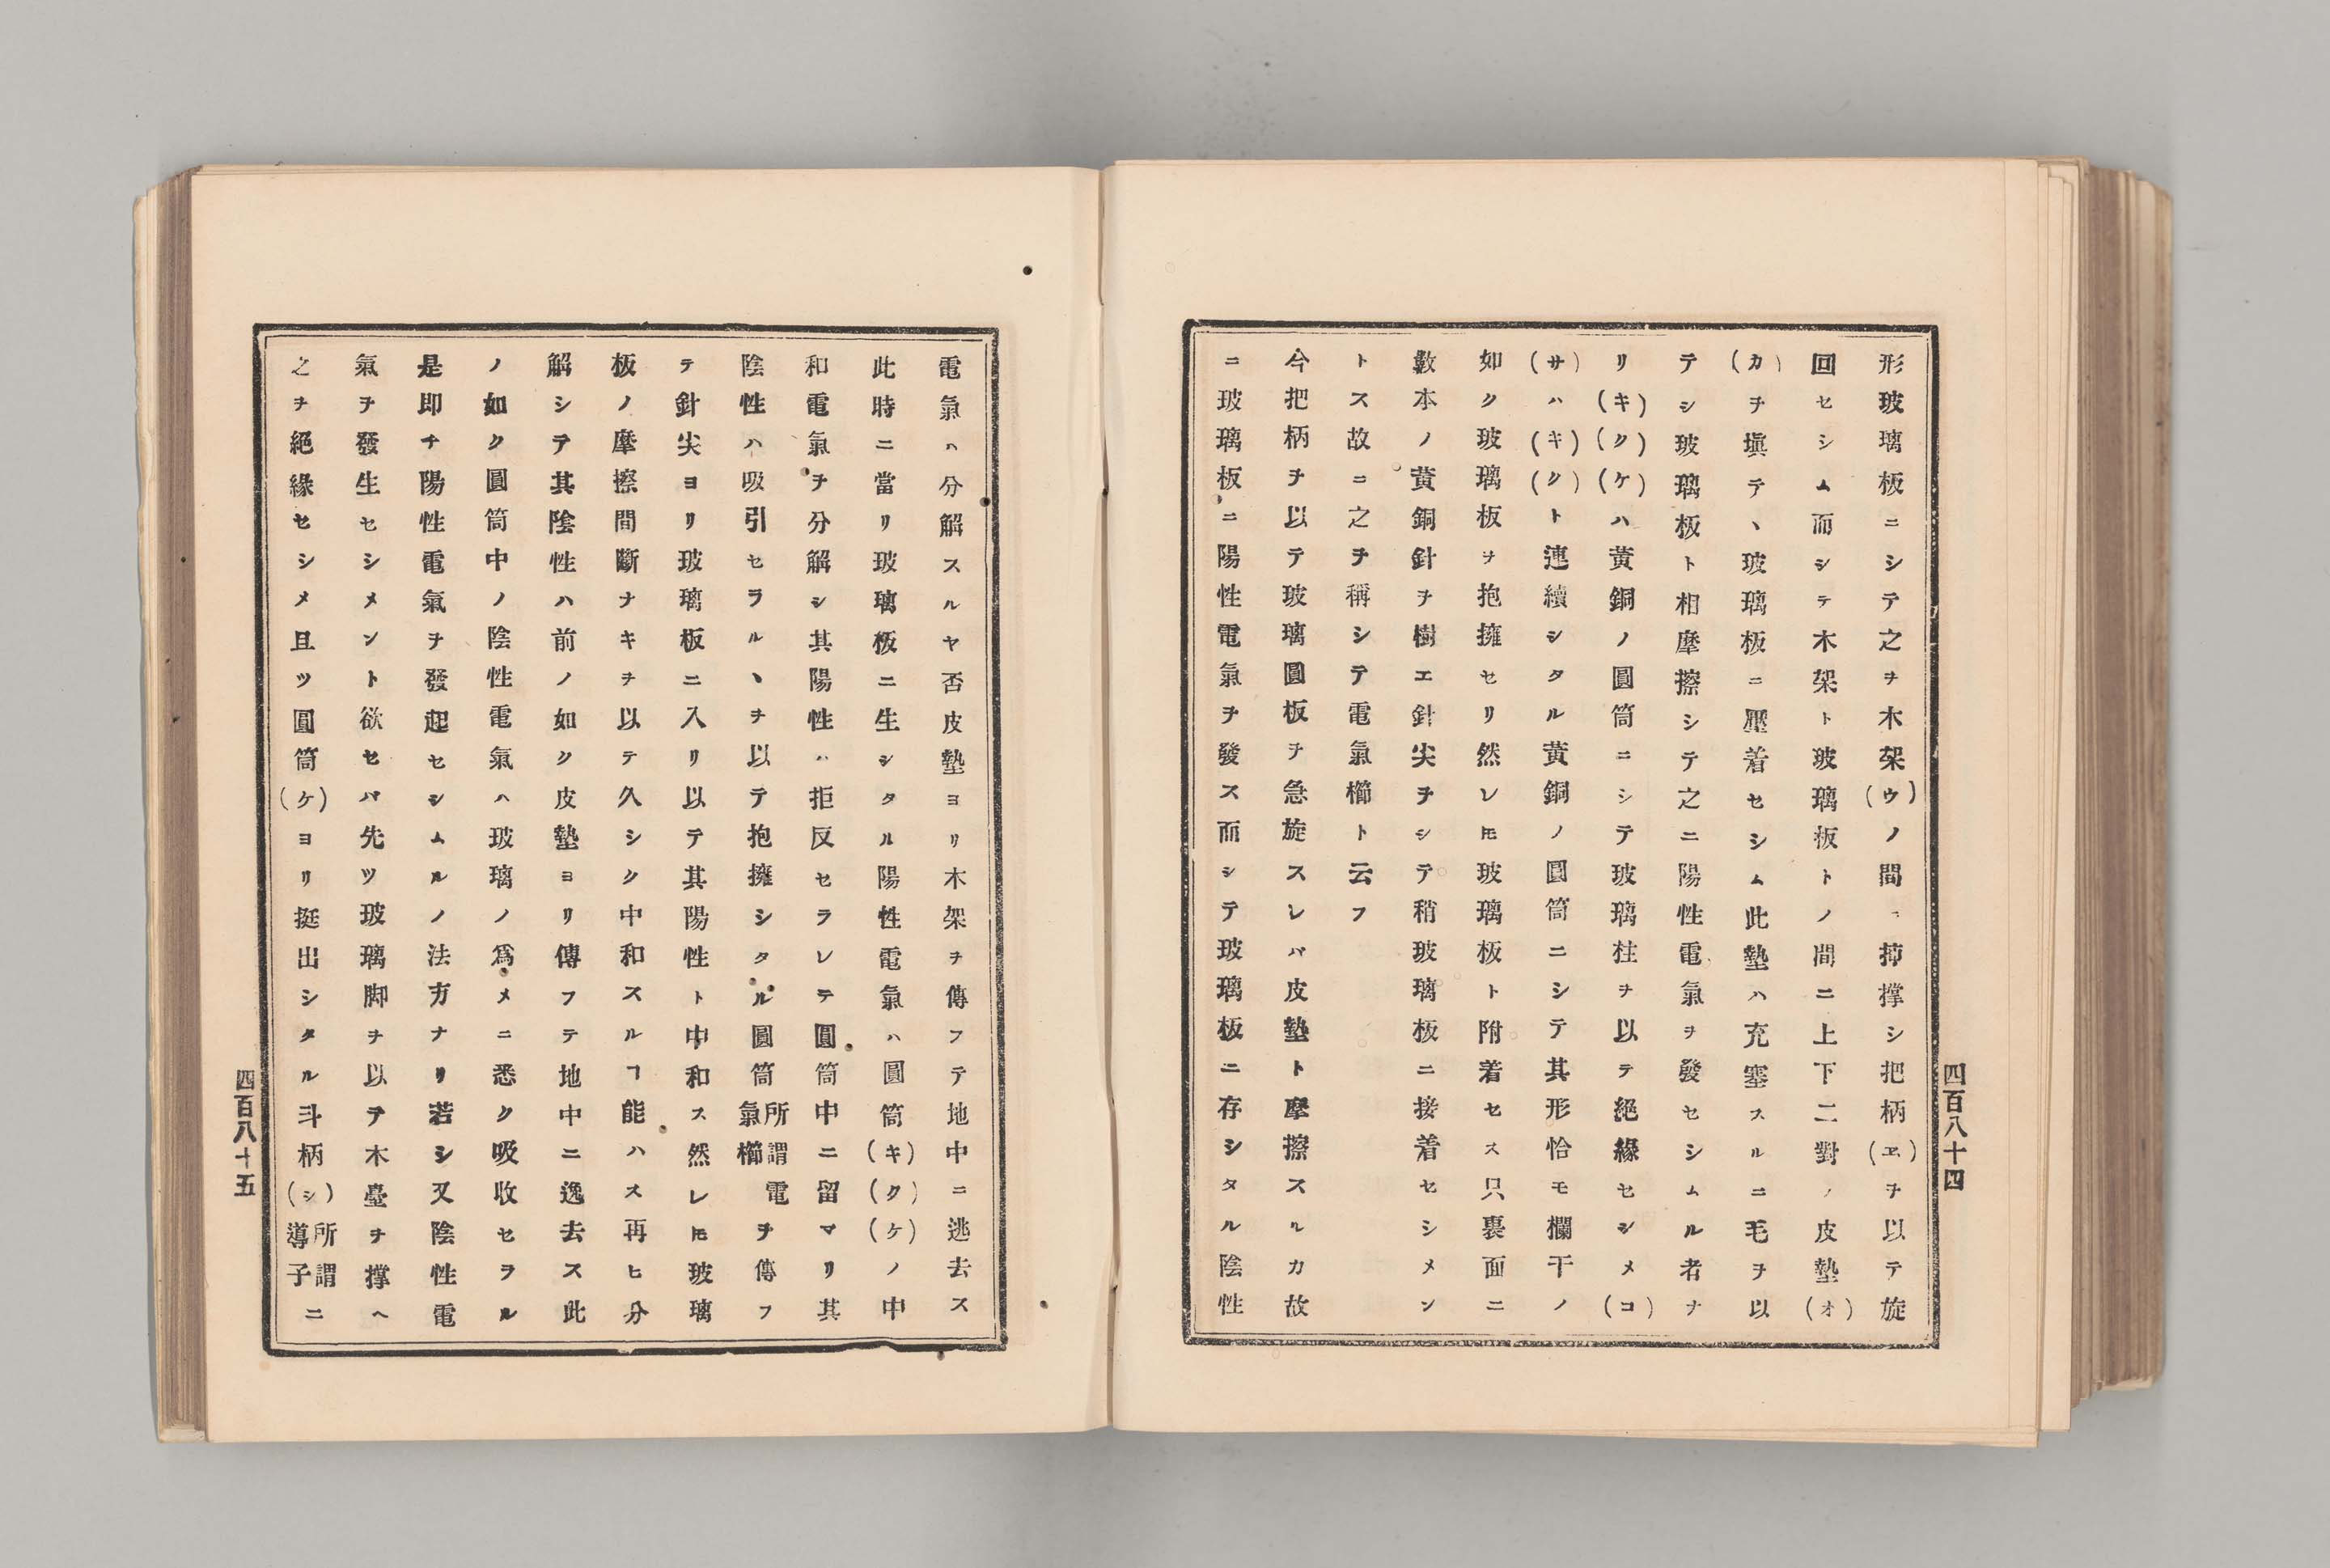 形玻璃板ニシテ之ヲ木架(ウ)ノ間ニ挿撑シ把柄(ヱ)ヲ以テ旋
回セシム而シテ木架ト玻璃板トノ間ニ上下二對ノ皮墊(オ)
(カ)ヲ塡テヽ玻璃板ニ壓着セシム此墊ハ充塞スルニ毛ヲ以
テシ玻璃板ト相摩擦シテ之ニ陽性電氣ヲ發セシムル者ナ
リ(キ)(ク)(ケ)ハ黃銅ノ圓筒ニシテ玻璃柱ヲ以テ絕緣セシメ(コ)
(サ)ハ(キ)(ク)ト連續シタル黃銅ノ圓筒ニシテ其形恰モ欄干ノ
如ク玻璃板ヲ抱擁セリ然レ𪜈玻璃板ト附着セス只裏面ニ
數本ノ黃銅針ヲ樹エ針尖ヲシテ稍玻璃板ニ接着セシメン
トス故ニ之ヲ稱シテ電氣櫛ト云フ
今把柄ヲ以テ玻璃圓板ヲ急旋スレバ皮墊ト摩擦スルカ故
ニ玻璃板ニ陽性電氣ヲ發ス而シテ玻璃板ニ存シタル陰性
四百八十四
電氣ハ分解スルヤ否皮墊ヨリ木架ヲ傳フテ地中ニ逃去ス
此時ニ當リ玻璃板ニ生シタル陽性電氣ハ圓筒(キ)(ク)(ケ)ノ中
和電氣ヲ分解シ其陽性ハ拒反セラレテ圓筒中ニ留マリ其
陰性ハ吸引セラルヽヲ以テ抱擁シタル圓筒所謂電氣櫛ヲ傳フ
テ針尖ヨリ玻璃板ニ入リ以テ其陽性ト中和ス然レ𪜈玻璃
板ノ摩擦間斷ナキヲ以テ久シク中和スルヿ能ハス再ヒ分
解シテ其陰性ハ前ノ如ク皮墊ヨリ傳フテ地中ニ逸去ス此
ノ如ク圓筒中ノ陰性電氣ハ玻璃ノ爲メニ悉ク吸收セラル
是即チ陽性電氣ヲ發起セシムルノ法方ナリ若シ又陰性電
氣ヲ發生セシメント欲セバ先ツ玻璃脚ヲ以テ木臺ヲ撑ヘ
之ヲ絕緣セシメ且ツ圓筒(ケ)ヨリ挺出シタル斗柄(シ)所謂導子ニ
四百八十五